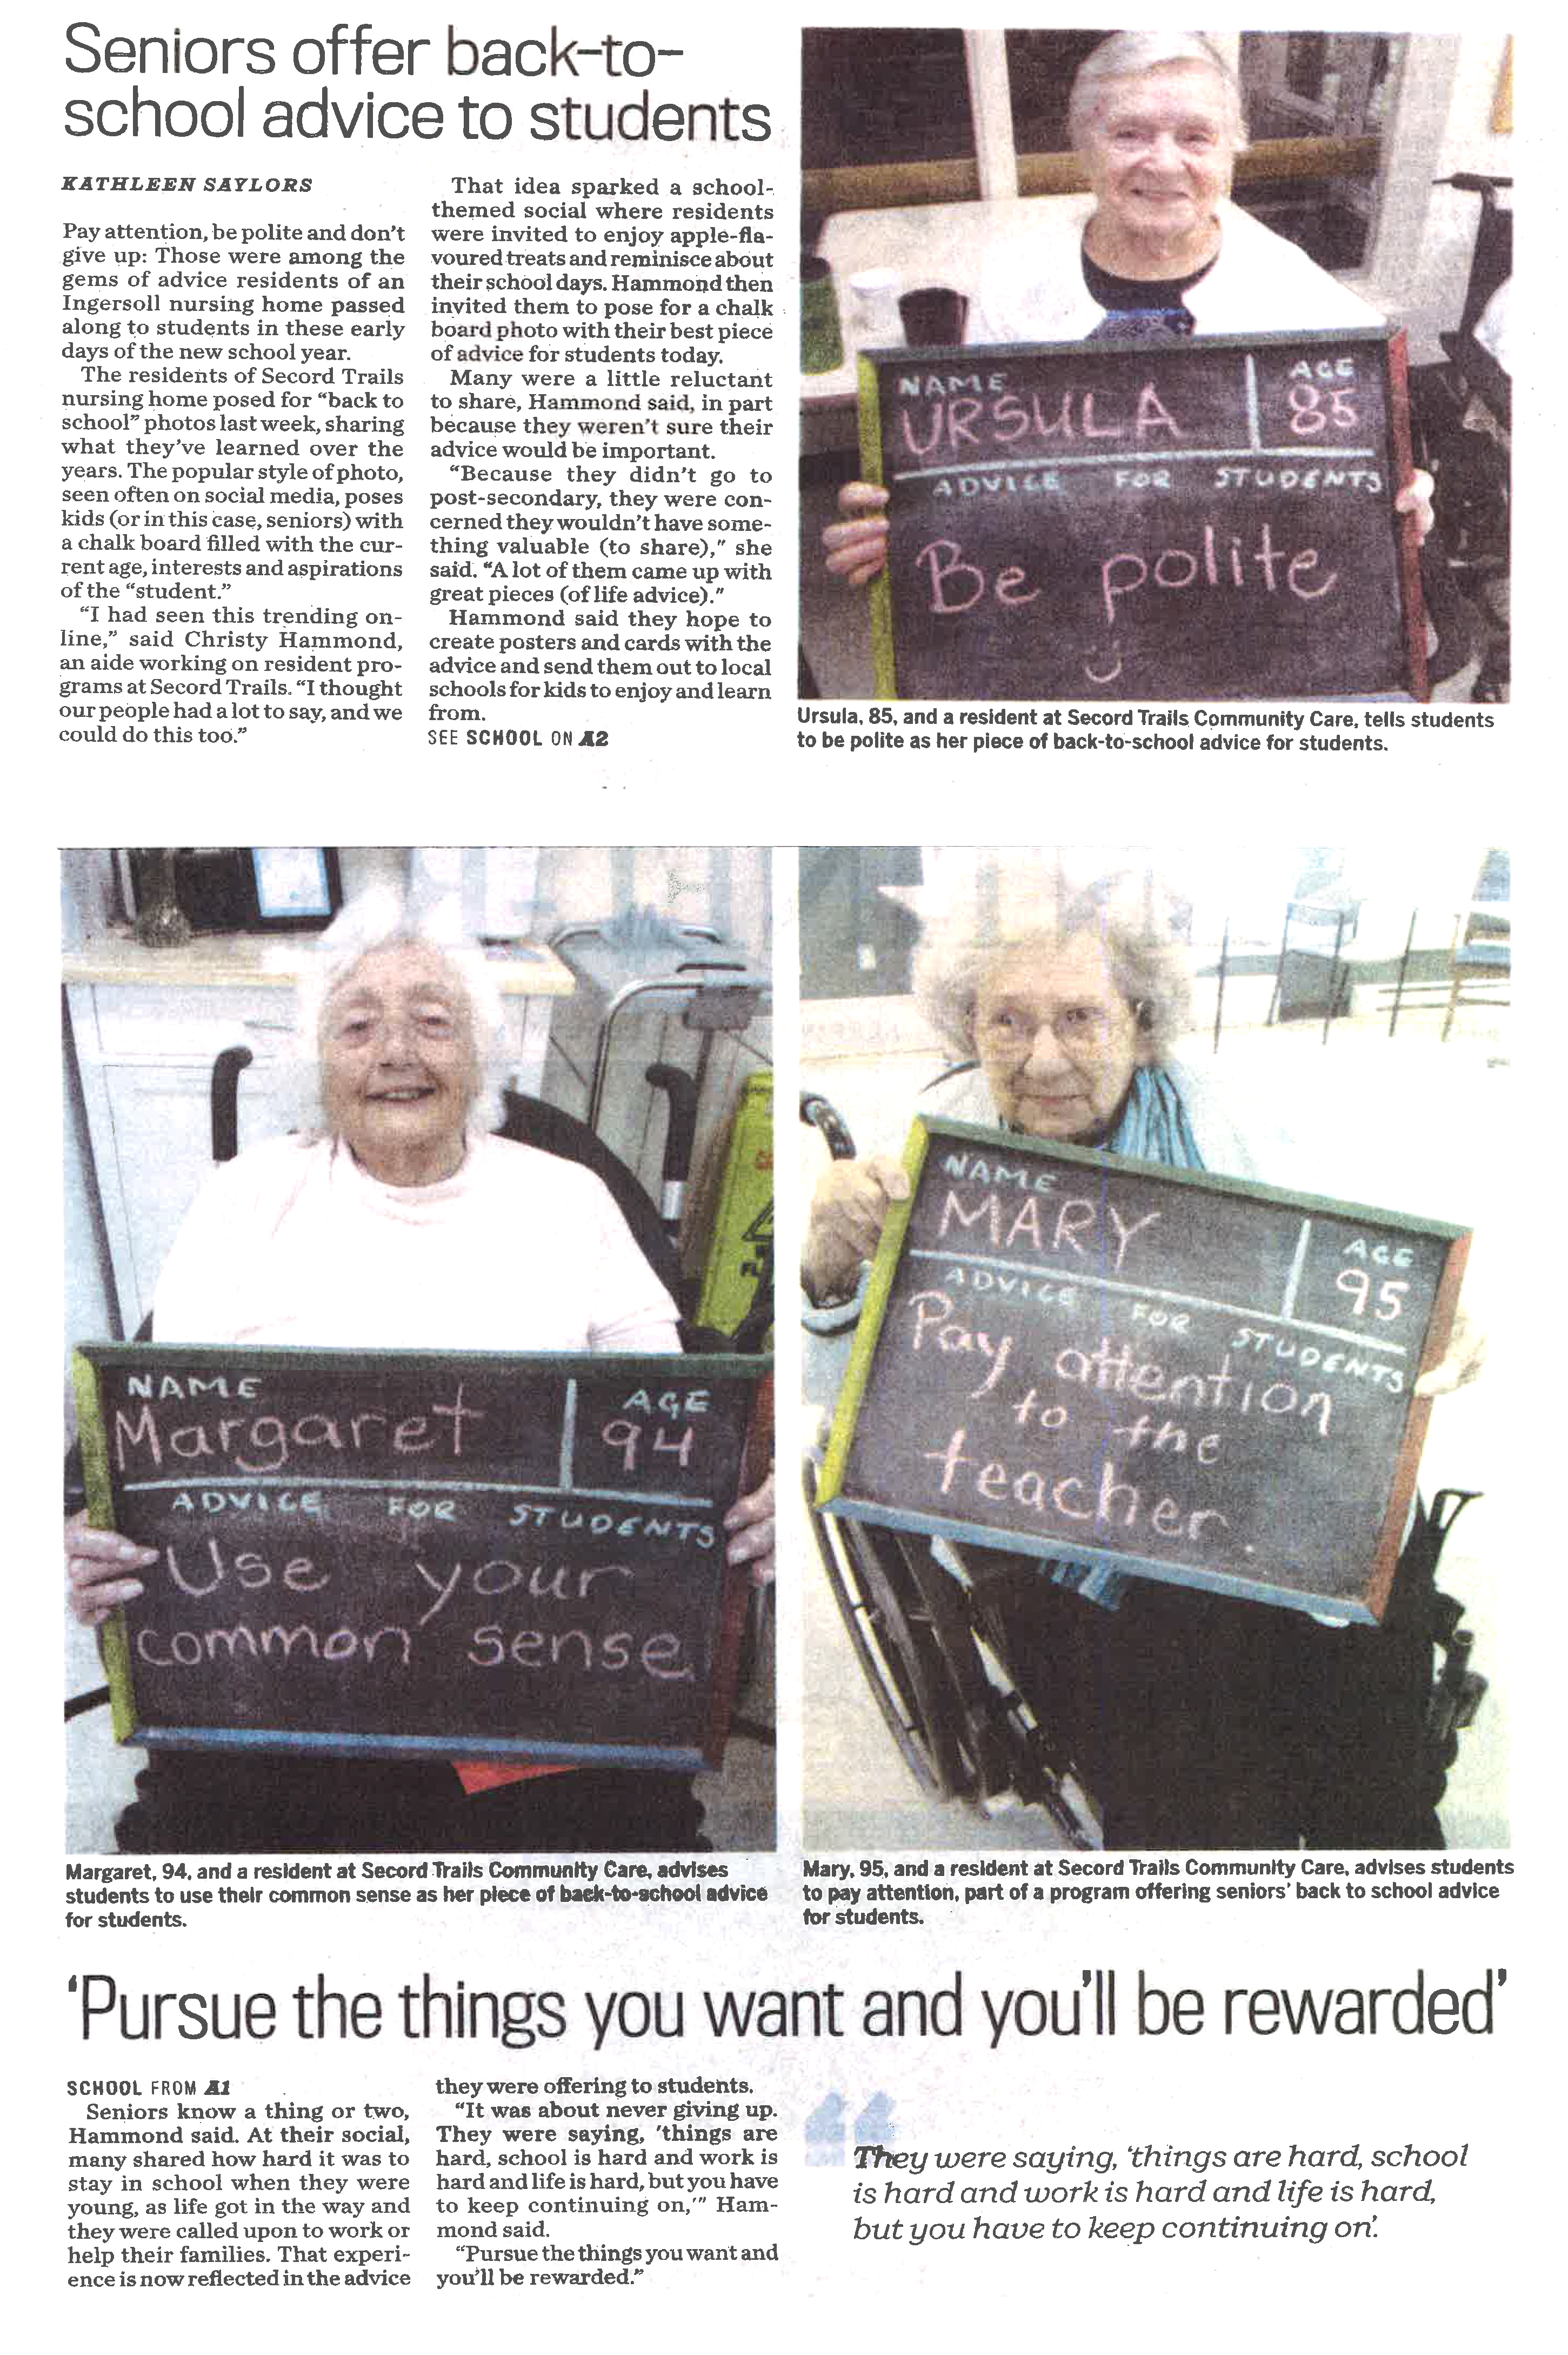 Seniors offer back-to-
school advice to students
KATHLEEN SAYLORS
Pay attention, be polite and don't
give up: Those were among the
gems of advice residents of an
Ingersoll nursing home passed
along to students in these early
days of the new school year.
The residents of Secord Trails
nursing home posed for "back to
school" photos last week, sharing
what they've learned over the
years. The popular style of photo,
seen often on social media, poses
kids (or in this case, seniors) with
a chalk board filled with the cur-
rent age, interests and aspirations
of the "student."
"I had seen this trending on-
line," said Christy Hammond,
an aide working on resident pro-
grams at Secord Trails. "I thought
our people had a lot to say, and we
could do this too."
That idea sparked a school-
themed social where residents
were invited to enjoy apple-fla-
voured treats and reminisce about
their school days. Hammond then
invited them to pose for a chalk
board photo with their best piece
of advice for students today.
Many were a little reluctant
to share, Hammond said, in part
because they weren't sure their
advice would be important.
"Because they didn't go to
post-secondary, they were con-
cerned they wouldn't have some-
thing valuable (to share)," she
said. "A lot of them came up with
great pieces (of life advice)."
Hammond said they hope to
create posters and cards with the
advice and send them out to local
schools for kids to enjoy and learn
from.
SEE SCHOOL ON A2
NAME
URSULA
AGE
85
ADVICE FOR STUDENTS
Be polite
Ursula, 85, and a resident at Secord Trails Community Care, tells students
to be polite as her piece of back-to-school advice for students.
NAME
Margaret
AGE
94
ADVICE FOR STUDENTS
Use your
common sense
Margaret, 94, and a resident at Secord Trails Community Care, advises
students to use their common sense as her piece of back-to-school advice
for students.
NAME
MARY
AGE
95
ADVICE FOR STUDENTS
Pay attention
to the
teacher
Mary, 95, and a resident at Secord Trails Community Care, advises students
to pay attention, part of a program offering seniors' back to school advice
for students.
'Pursue the things you want and you'll be rewarded'
SCHOOL FROM A1
Seniors know a thing or two,
Hammond said. At their social,
many shared how hard it was to
stay in school when they were
young, as life got in the way and
they were called upon to work or
help their families. That experi-
ence is now reflected in the advice
they were offering to students.
"It was about never giving up.
They were saying, 'things are
hard, school is hard and work is
hard and life is hard, but you have
to keep continuing on,'" Ham-
mond said.
"Pursue the things you want and
you'll be rewarded."
They were saying, 'things are hard, school
is hard and work is hard and life is hard,
but you have to keep continuing on'.